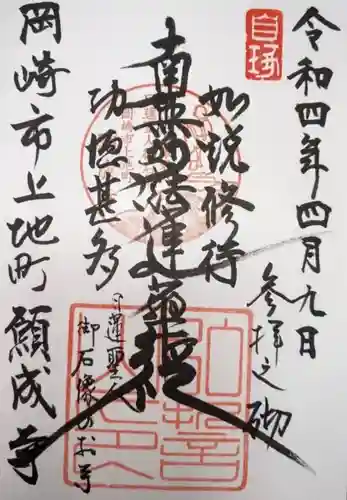 令和四年四月九日
参拝之砌
如説修行
南無妙法蓮華経
功徳甚多
日蓮聖人
御石像のお寺
岡崎市上地町
願成寺